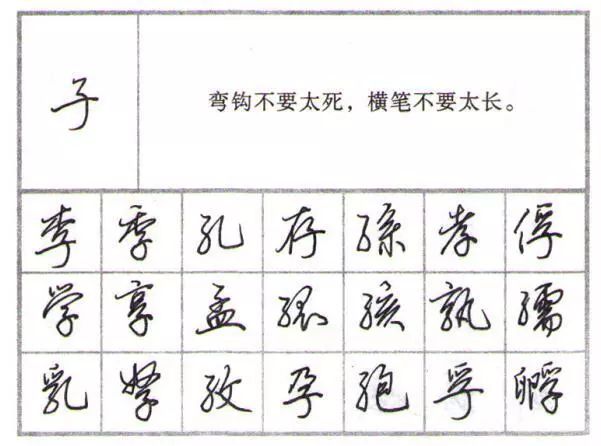 子
弯钩不要太死，横笔不要太长。
李 季 孔 存 孫 孝 俘
学 享 孟 孤 孩 孰 孺
乳 孥 孜 孕 孢 孚 孵